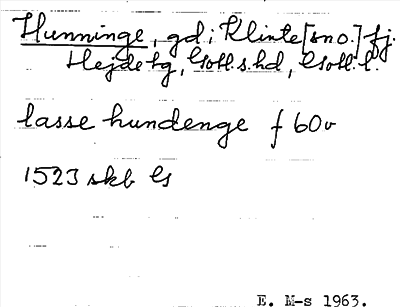 Hunninge, gd i Klinte [sno.] fj.
Hejde tg, Gotl. s. hd, Gotl. l.
lasse hundenge f 60v
1523 skb G
E. M-s 1963.